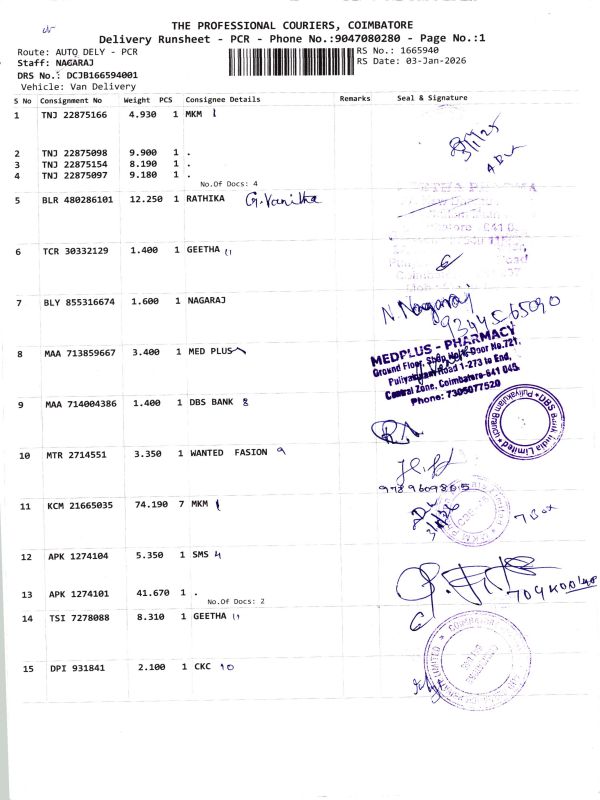 THE PROFESSIONAL COURIERS, COIMBATORE
Delivery Runsheet - PCR - Phone No.:9047080280 - Page No.:1
Route: AUTO DELY - PCR
RS No.: 1665940
Staff: NAGARAJ
RS Date: 03-Jan-2026
DRS No.: DCJB166594001
Vehicle: Van Delivery
S No Consignment No Weight PCS Consignee Details Remarks Seal & Signature
1 TNJ 22875166 4.930 1 MKM 1
2 TNJ 22875098 9.900 1 .
3 TNJ 22875154 8.190 1 .
4 TNJ 22875097 9.180 1 .
No.Of Docs: 4
5 BLR 480286101 12.250 1 RATHIKA G. Vanitha
6 TCR 30332129 1.400 1 GEETHA 11
7 BLY 855316674 1.600 1 NAGARAJ
N. Nagaraj
9344565090
8 MAA 713859667 3.400 1 MED PLUS
MEDPLUS - PHARMACY
Ground Floor, Shop No.
Door No.721,
Puliyakulam Road 1-273 to End,
Central Zone, Coimbatore-641 045.
Phone: 7305077520
9 MAA 714004386 1.400 1 DBS BANK 8
DBS Bank India Limited
Puliyakulam Branch
10 MTR 2714551 3.350 1 WANTED FASION 9
9789609805
11 KCM 21665035 74.190 7 MKM 1
7 Box
12 APK 1274104 5.350 1 SMS 4
13 APK 1274101 41.670 1 .
No.Of Docs: 2
14 TSI 7278088 8.310 1 GEETHA 11
15 DPI 931841 2.100 1 CKC 10